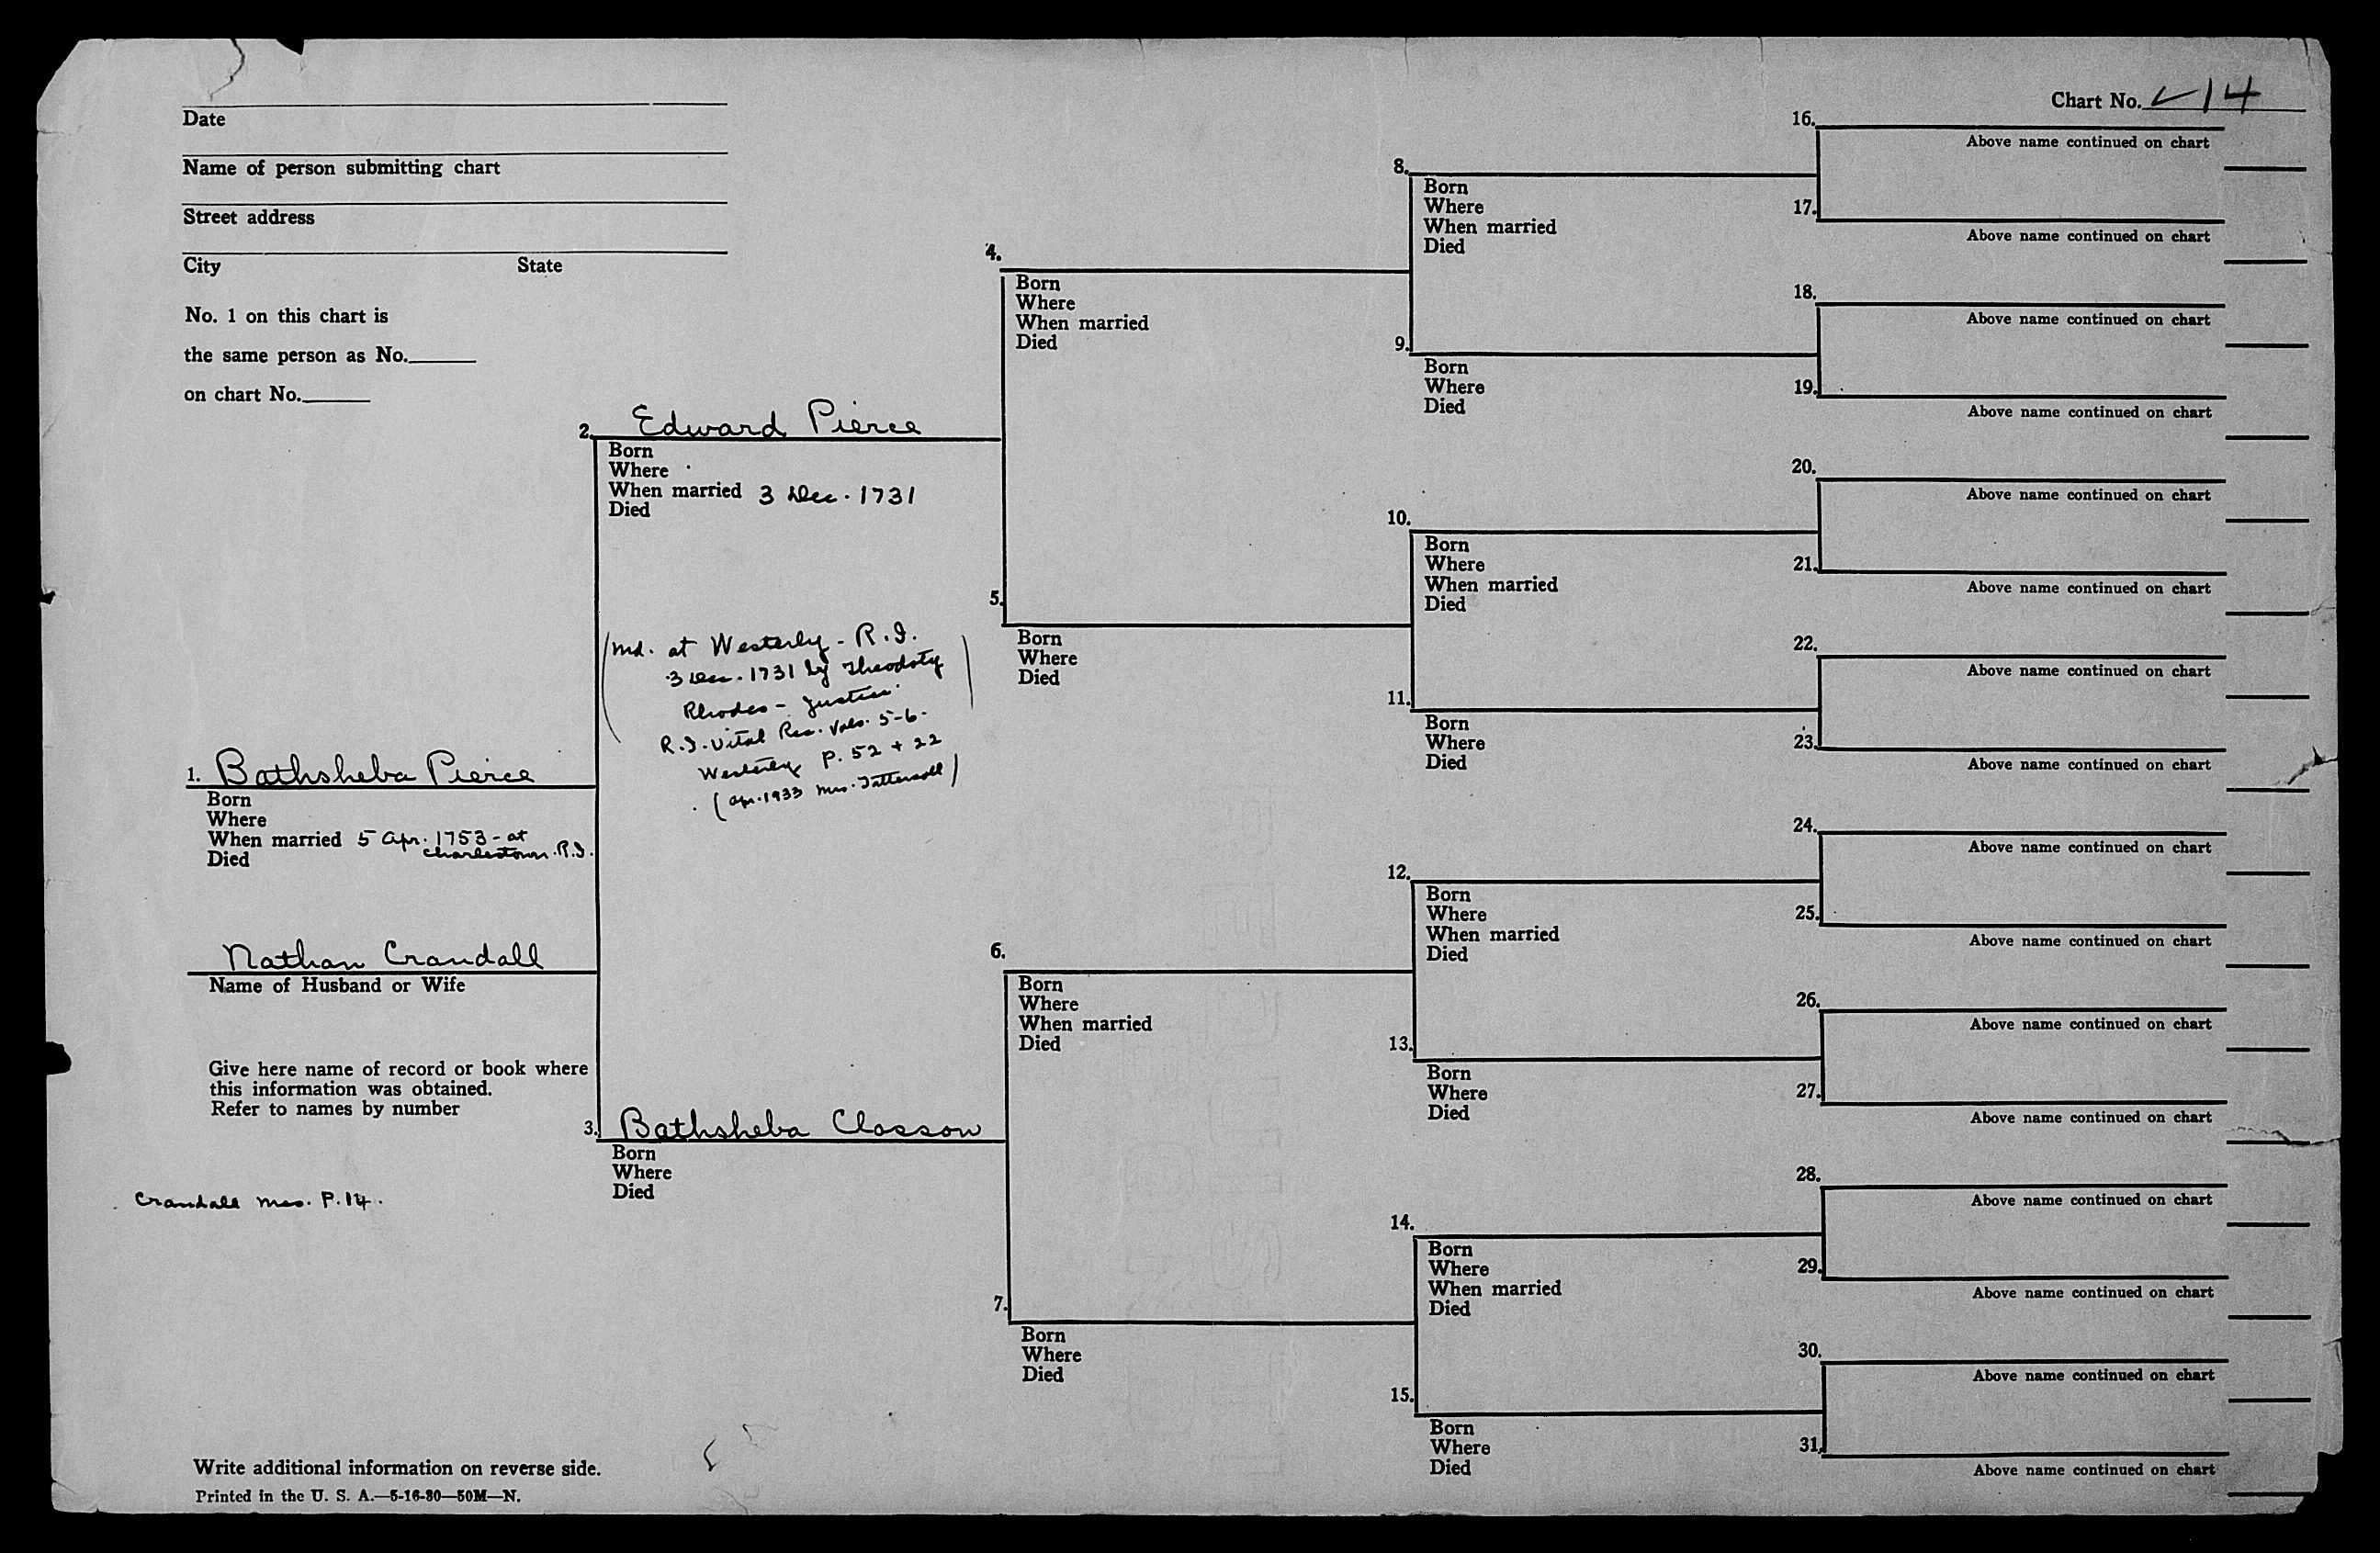 Chart No. ✓14
Date
Name of person submitting chart
Street address
City State
No. 1 on this chart is
the same person as No.
on chart No.
1. Bathsheba Pierce
Born
Where
When married 5 Apr. 1753 - at
Charlestown. R.I.
Died
Nathan Crandall
Name of Husband or Wife
Give here name of record or book where
this information was obtained.
Refer to names by number
Crandall mss. P. 14.
Write additional information on reverse side.
Printed in the U. S. A.—5-16-30—50M—N.
2. Edward Pierce
Born
Where
When married 3 Dec. 1731
Died
(md. at Westerly - R.I.
3 Dec. 1731 by Theodoty
Rhodes - Justice.)
R.I. Vital Rec. Vols. 5-6.
Westerly P. 52 + 22
(Apr. 1933 Mrs. Tattersall)
3. Bathsheba Closson
Born
Where
Died
4.
Born
Where
When married
Died
5.
Born
Where
Died
6.
Born
Where
When married
Died
7.
Born
Where
Died
8.
Born
Where
When married
Died
9.
Born
Where
Died
10.
Born
Where
When married
Died
11.
Born
Where
Died
12.
Born
Where
When married
Died
13.
Born
Where
Died
14.
Born
Where
When married
Died
15.
Born
Where
Died
16.
Above name continued on chart
17.
Above name continued on chart
18.
Above name continued on chart
19.
Above name continued on chart
20.
Above name continued on chart
21.
Above name continued on chart
22.
Above name continued on chart
23.
Above name continued on chart
24.
Above name continued on chart
25.
Above name continued on chart
26.
Above name continued on chart
27.
Above name continued on chart
28.
Above name continued on chart
29.
Above name continued on chart
30.
Above name continued on chart
31.
Above name continued on chart